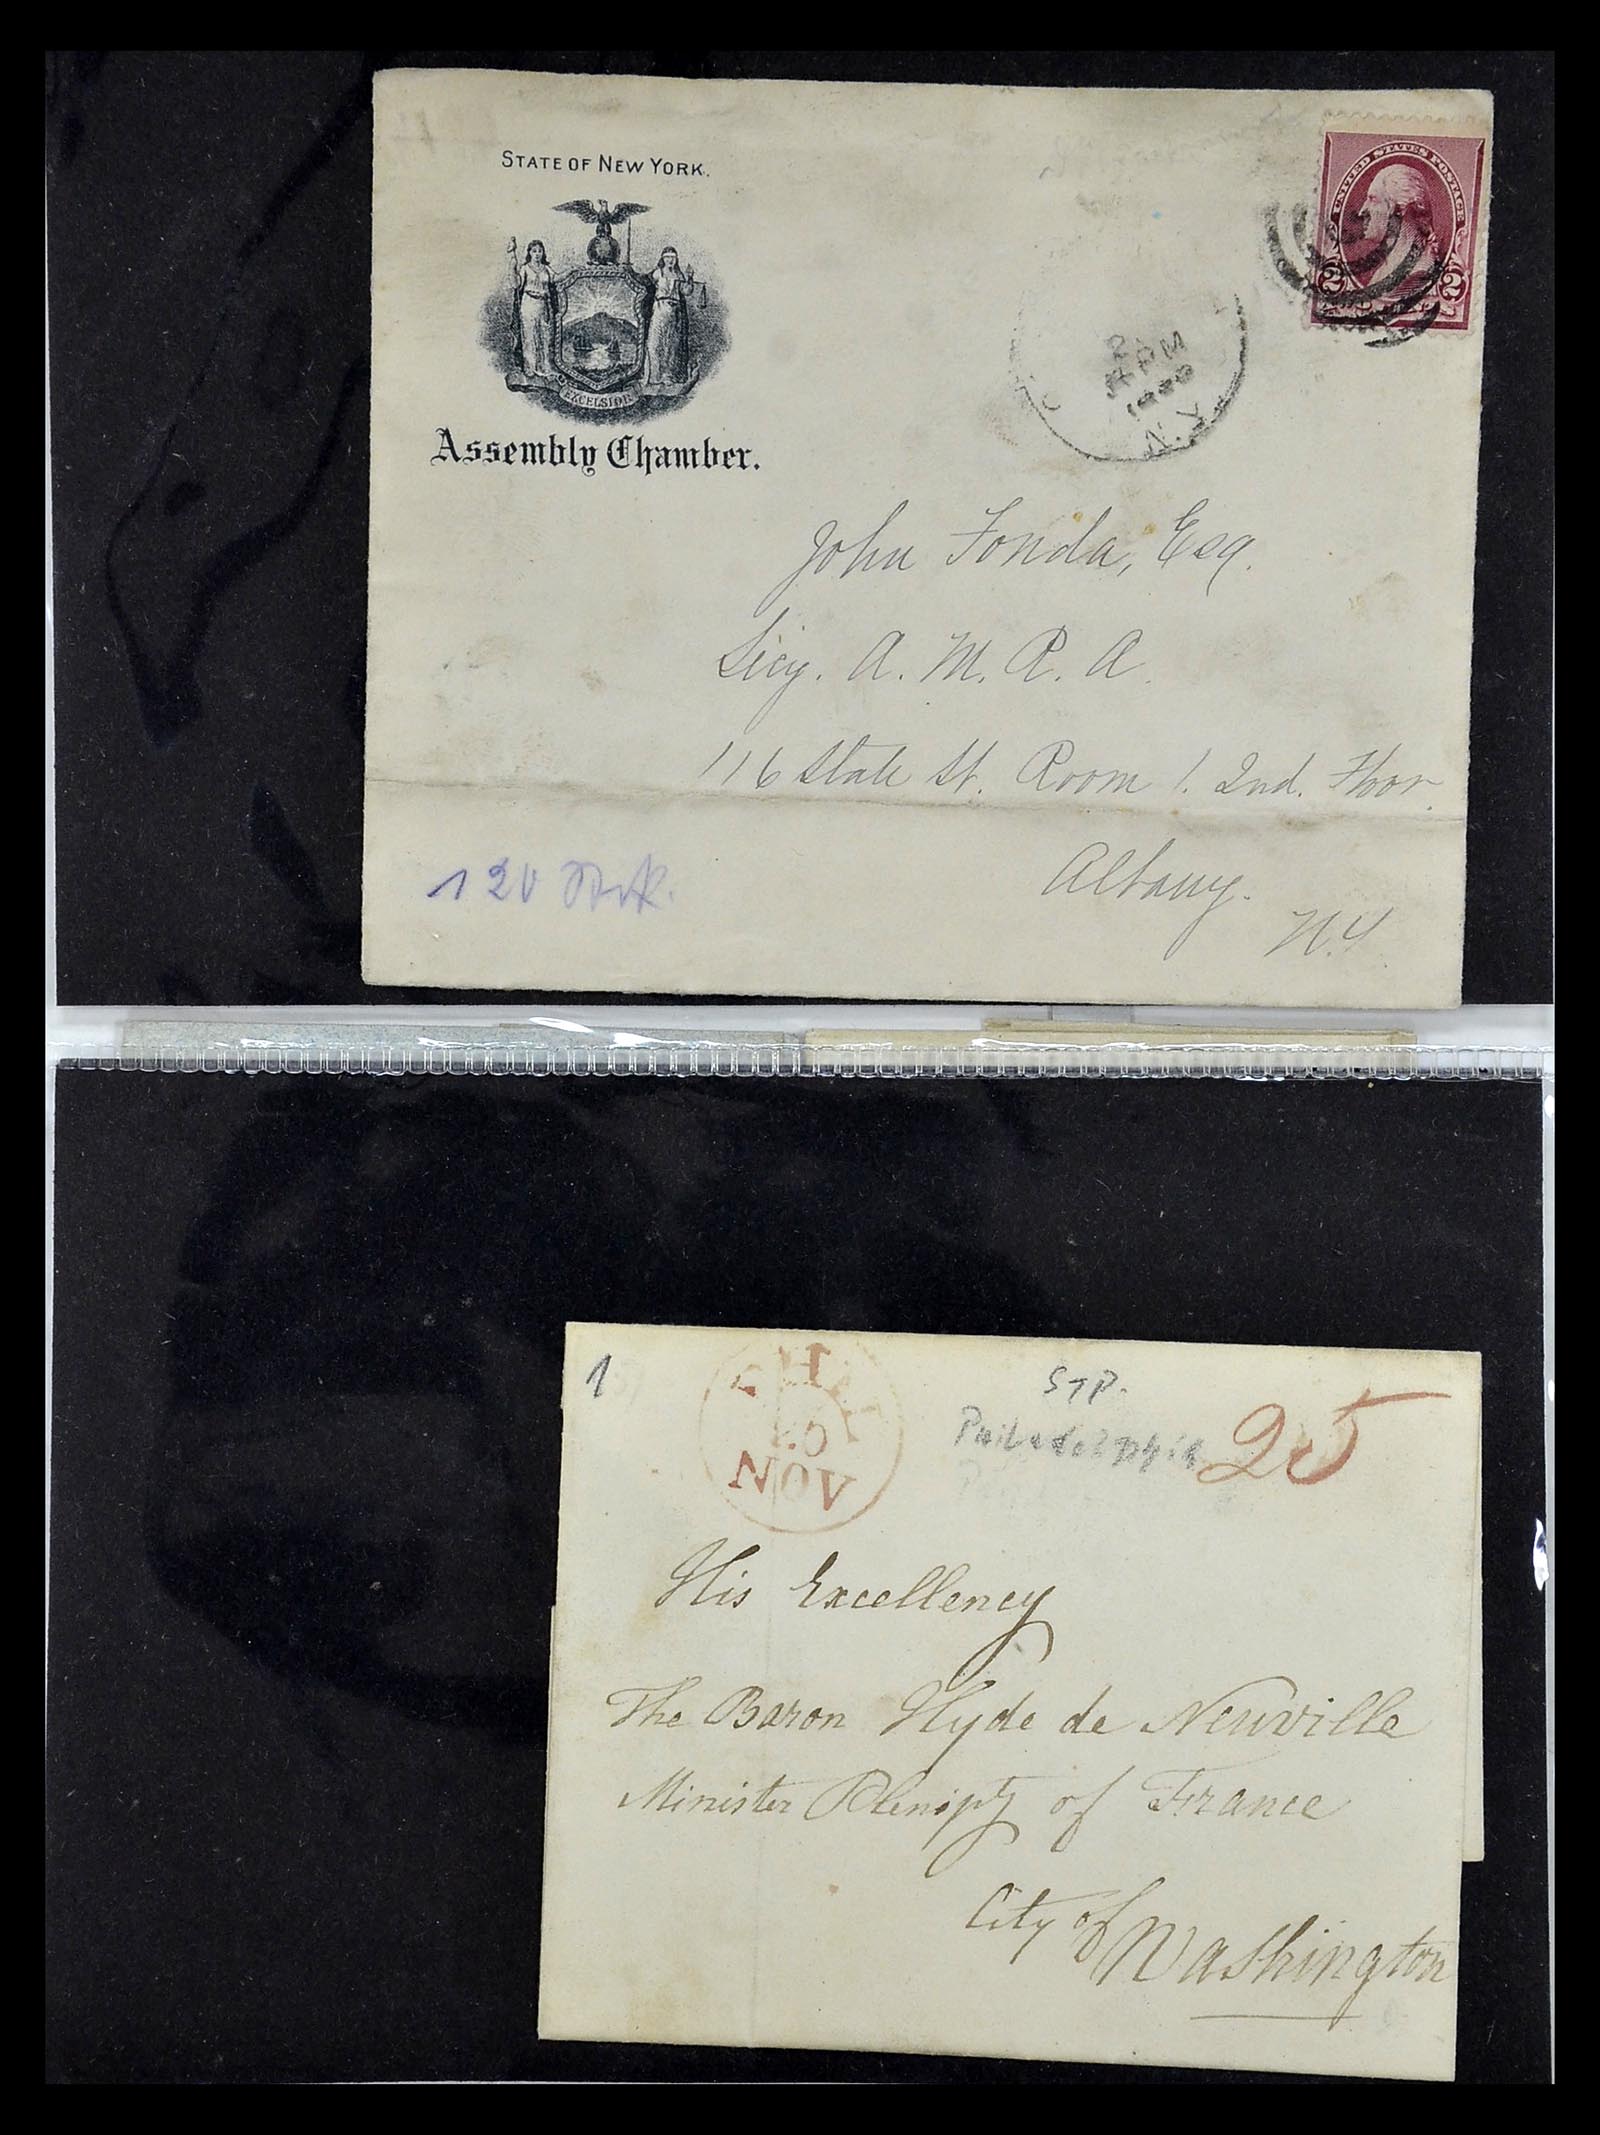 STATE OF NEW YORK.
EXCELSIOR
Assembly Chamber.
UNITED STATES POSTAGE
2 2
2
4 PM
N.Y.
John Fonda, Esq.
Secy. A. M. R. A.
116 State St. Room 1. 2nd. Floor.
Albany.
N.Y.
120
1
NOV
STP.
Philadelphia
25
His Excellency
The Baron Hyde de Neuville
Minister Plenipty of France
City of
Washington